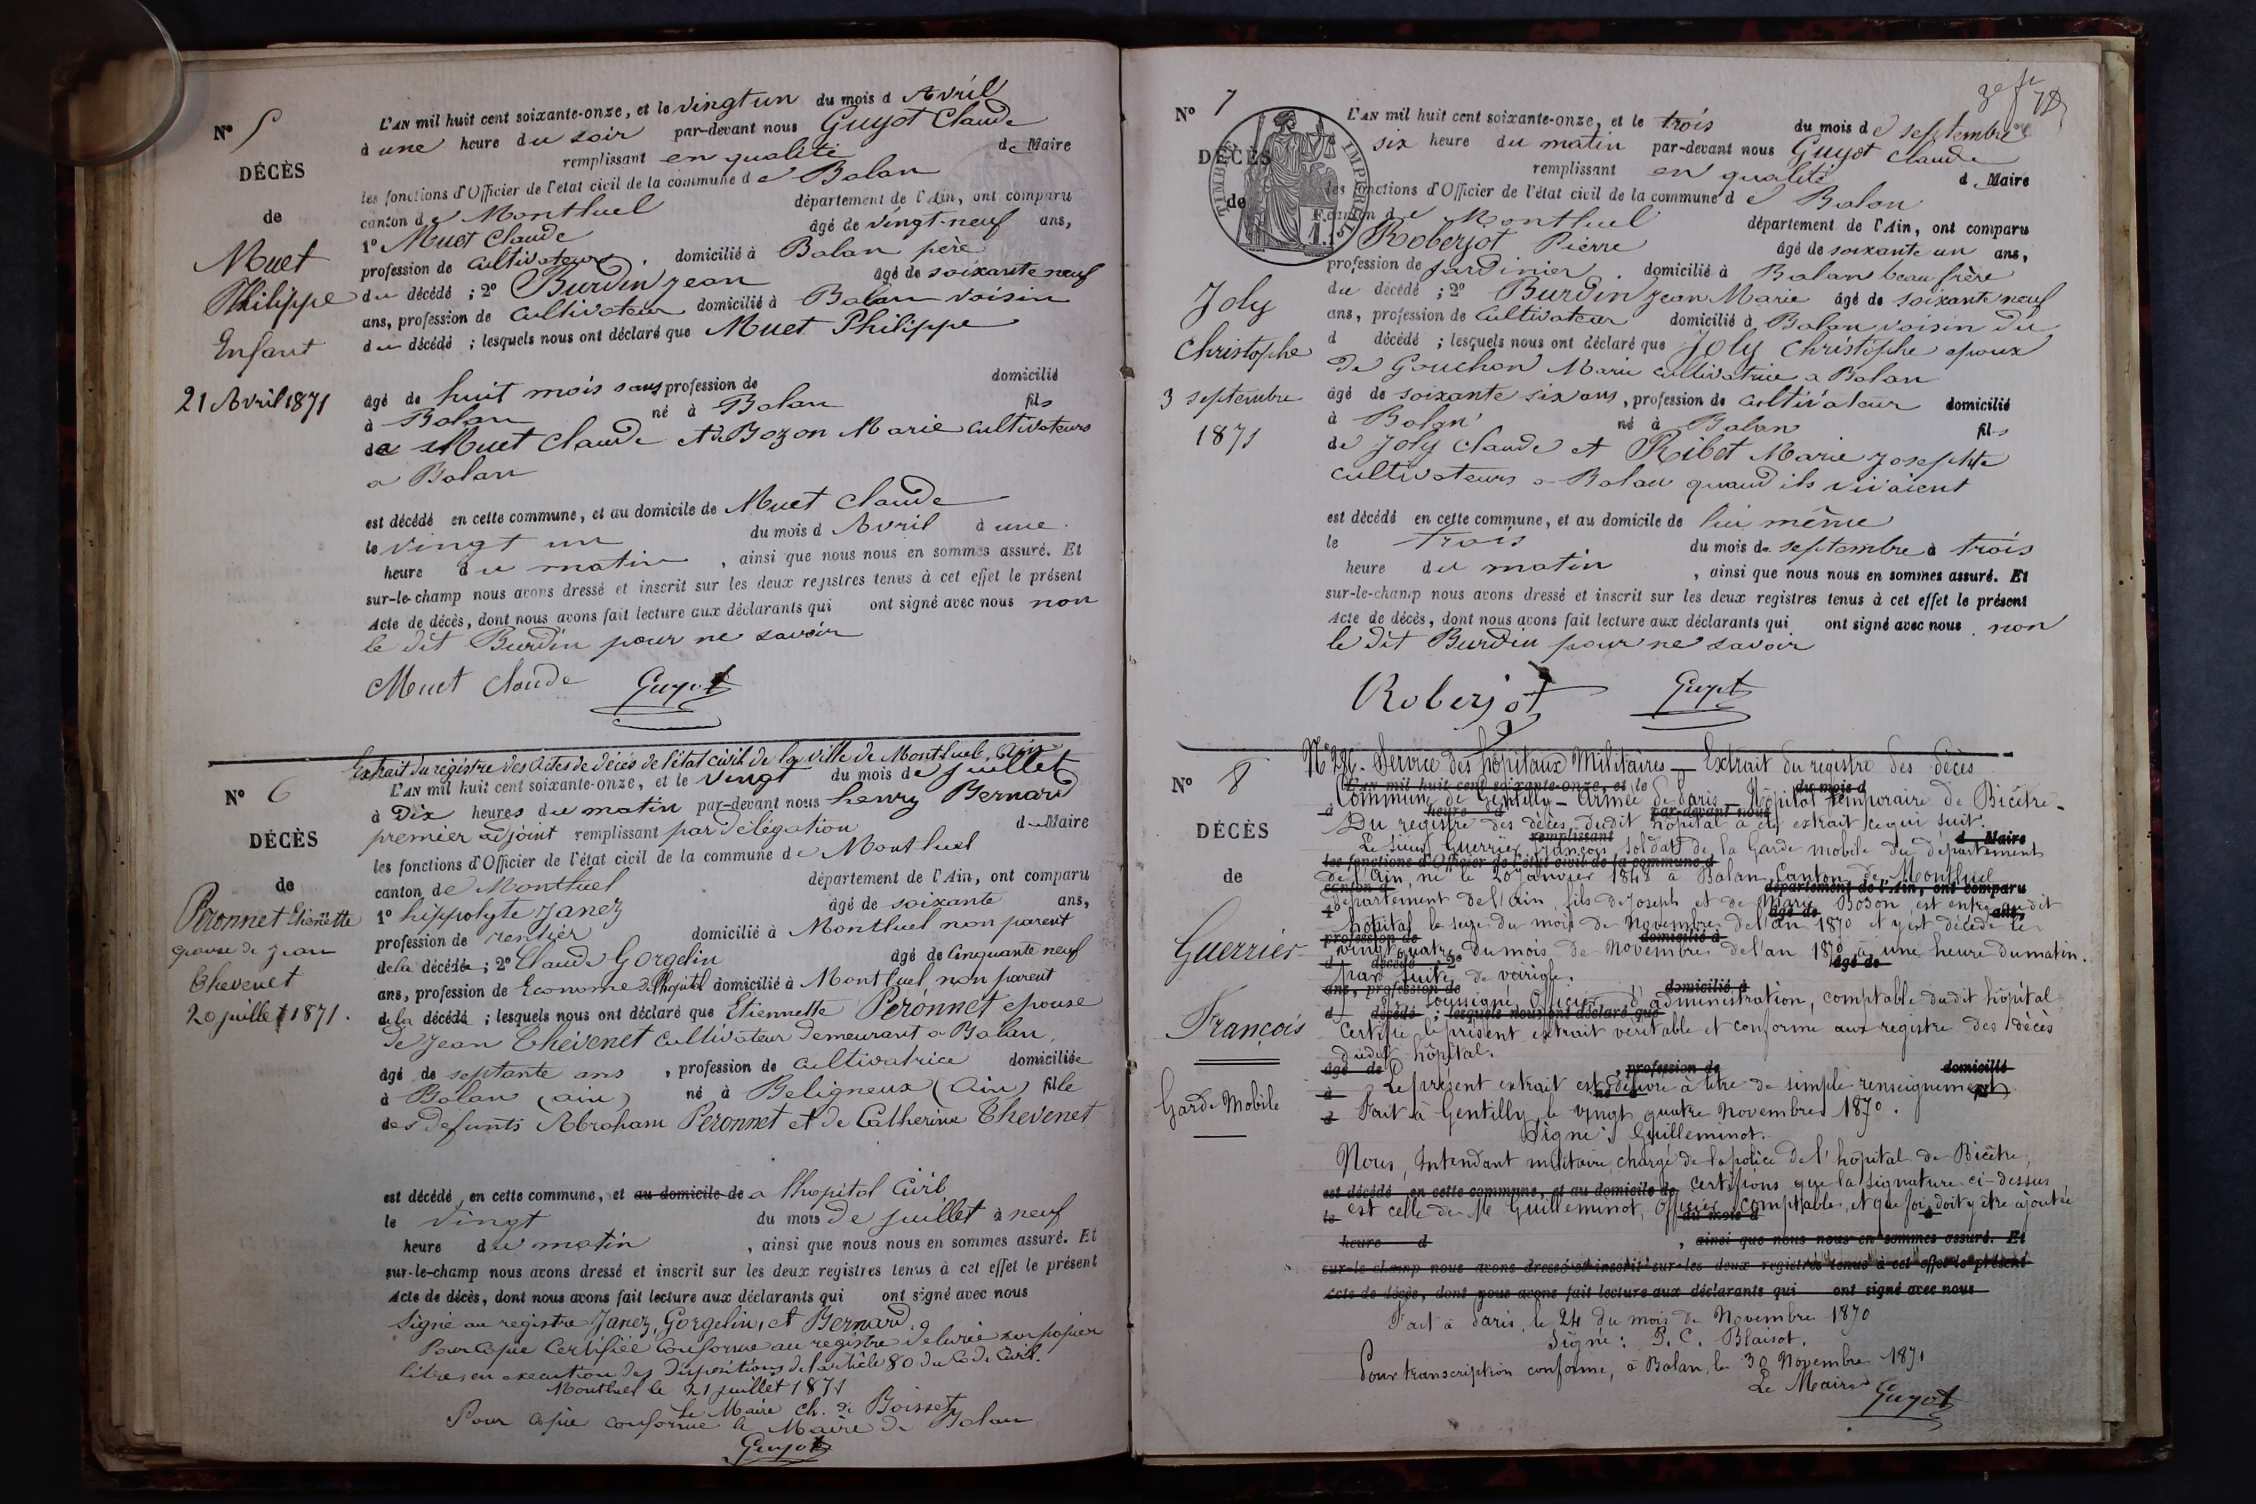 N° 5
DÉCÈS
de
Muet
Philippe
Enfant
21 Avril 1871
L'AN mil huit cent soixante-onze, et le vingt un du mois d Avril
à une heure du soir par-devant nous Guyot Claude
remplissant en qualité de Maire
les fonctions d'Officier de l'état civil de la commune de Balan
canton de Montluel département de l'Ain, ont comparu
1° Muet Claude âgé de vingt-neuf ans,
profession de cultivateur, domicilié à Balan père
du décédé ; 2° Burdin Jean âgé de soixante neuf
ans, profession de cultivateur domicilié à Balan voisin
du décédé ; lesquels nous ont déclaré que Muet Philippe
âgé de huit mois sans profession de domicilié
à Balan né à Balan fils
de Muet Claude et de Bozon Marie cultivateurs
a Balan
est décédé en cette commune, et au domicile de Muet Claude
le vingt un du mois d Avril à une
heure du matin, ainsi que nous nous en sommes assuré. Et
sur-le-champ nous avons dressé et inscrit sur les deux registres tenus à cet effet le présent
Acte de décès, dont nous avons fait lecture aux déclarants qui ont signé avec nous non
le dit Burdin pour ne savoir
Muet Claude Guyot
Extrait du registre des actes de décès de l'état civil de la ville de Montluel, Ain
N° 6
DÉCÈS
de
Peronnet Etiennette
épouse de Jean
Thevenet
20 juillet 1871.
L'AN mil huit cent soixante-onze, et le vingt du mois de juillet
à Dix heures du matin par-devant nous henry Bernard
premier adjoint remplissant par délégation du Maire
les fonctions d'Officier de l'état civil de la commune de Montluel
canton de Montluel département de l'Ain, ont comparu
1° hippolyte Janez âgé de soixante ans,
profession de rentier domicilié à Montluel non parent
dela décédée ; 2° Claude Gorgelin âgé de Cinquante neuf
ans, profession de Econome de l'hopital domicilié à Montluel, non parent
dela décédée ; lesquels nous ont déclaré que Etiennette Peronnet epouse
de Jean Thévenet cultivateur demeurant a Balan,
âgé de septante ans, profession de cultivatrice domiciliée
à Balan (ain) né à Beligneux (Ain) fille
des défunts Abraham Peronnet et de Catherine Thevenet
est décédé en cette commune, et au domicile de a lhopital Civil
le vingt du mois de juillet à neuf
heure du matin, ainsi que nous nous en sommes assuré. Et
sur-le-champ nous avons dressé et inscrit sur les deux registres tenus à cet effet le présent
Acte de décès, dont nous avons fait lecture aux déclarants qui ont signé avec nous
Signé au registre Janez, Gorgelin, et Bernard.
Pour Copie Certifiée conforme au registre delivrée sur papier
libre en execution des dispositions de l'article 80 du Code Civil.
Montluel le 21 juillet 1871
Le Maire Ch. de Boissey
Pour Copie conforme le Maire de Balan
Guyot
N° 7
DÉCÈS
de
TIMBRE IMPÉRIAL
Joly
Christophe
3 septembre
1871
L'AN mil huit cent soixante-onze, et le trois du mois de septembre
six heure du matin par-devant nous Guyot Claude
remplissant en qualité d Maire
les fonctions d'Officier de l'état civil de la commune de Balan
canton de Montluel département de l'Ain, ont comparu
Roberjot Pierre âgé de soixante un ans,
profession de jardinier. domicilié à Balan beau frère
du décédé ; 2° Burdin Jean Marie âgé de soixante neuf
ans, profession de cultivateur domicilié à Balan voisin du
d décédé ; lesquels nous ont déclaré que Joly Christophe epoux
de Gouchon Marie cultivatrice a Balan
âgé de soixante six ans, profession de cultivateur domicilié
à Balan né à Balan fils
de Joly Claude et Ribet Marie Josephte
cultivateurs a Balan quand ils vivaient
est décédé en cette commune, et au domicile de lui même
le trois du mois de septembre à trois
heure du matin, ainsi que nous nous en sommes assuré. Et
sur-le-champ nous avons dressé et inscrit sur les deux registres tenus à cet effet le présent
Acte de décès, dont nous avons fait lecture aux déclarants qui ont signé avec nous non
le dit Burdin pour ne savoir
Roberjot Guyot
N° 8
DÉCÈS
de
Guerrier
François
Garde Mobile
Service des hôpitaux Militaires — Extrait du registre des décès
L'AN mil huit cent soixante-onze, et le du mois d
Commune de Gentilly — Armée de Paris — Hôpital temporaire de Bicêtre.
à heure d par-devant nous
Du registre des décès dudit hôpital a été extrait ce qui suit.
remplissant d Maire
Le sieur Guerrier François, soldat de la Garde mobile du département
les fonctions d'Officier de l'état civil de la commune d
de l'Ain, né le 20 janvier 1848 à Balan, Canton de Montluel
canton d département de l'Ain, ont comparu
département de l'Ain, fils de Joseph et de Marie Bozon, est entré audit
1° âgé de ans,
hôpital le seize du mois de Novembre de l'an 1870 et y est décédé le
profession de domicilié à
vingt quatre du mois de Novembre de l'an 1870 à une heure du matin.
d décédé 2° âgé de
par suite de variole.
ans, profession de domicilié à
soussigné, Officier d'administration, comptable dudit hôpital
d décédé ; lesquels nous ont déclaré que
Certifie le présent extrait véritable et conforme aux registre des décès
dudit hôpital.
âgé de , profession de domicilié
Le présent extrait est délivré à titre de simple renseignement
à né à fil
Fait à Gentilly, le vingt quatre Novembre 1870.
d
Signé : Guilleminot.
Nous, Intendant militaire, chargé de la police de l'hôpital de Bicêtre,
est décédé en cette commune, et au domicile de certifions que la signature ci-dessus
est celle de Me Guilleminot, Officier comptable, et que foi doit y être ajoutée
le du mois d à
heure d , ainsi que nous nous en sommes assuré. Et
sur-le-champ nous avons dressé et inscrit sur les deux registres tenus à cet effet le présent
Acte de décès, dont nous avons fait lecture aux déclarants qui ont signé avec nous
Fait à Paris, le 24 du mois de Novembre 1870
Signé : P. C. Blaisot.
Pour transcription conforme, à Balan, le 30 Novembre 1871
Le Maire Guyot